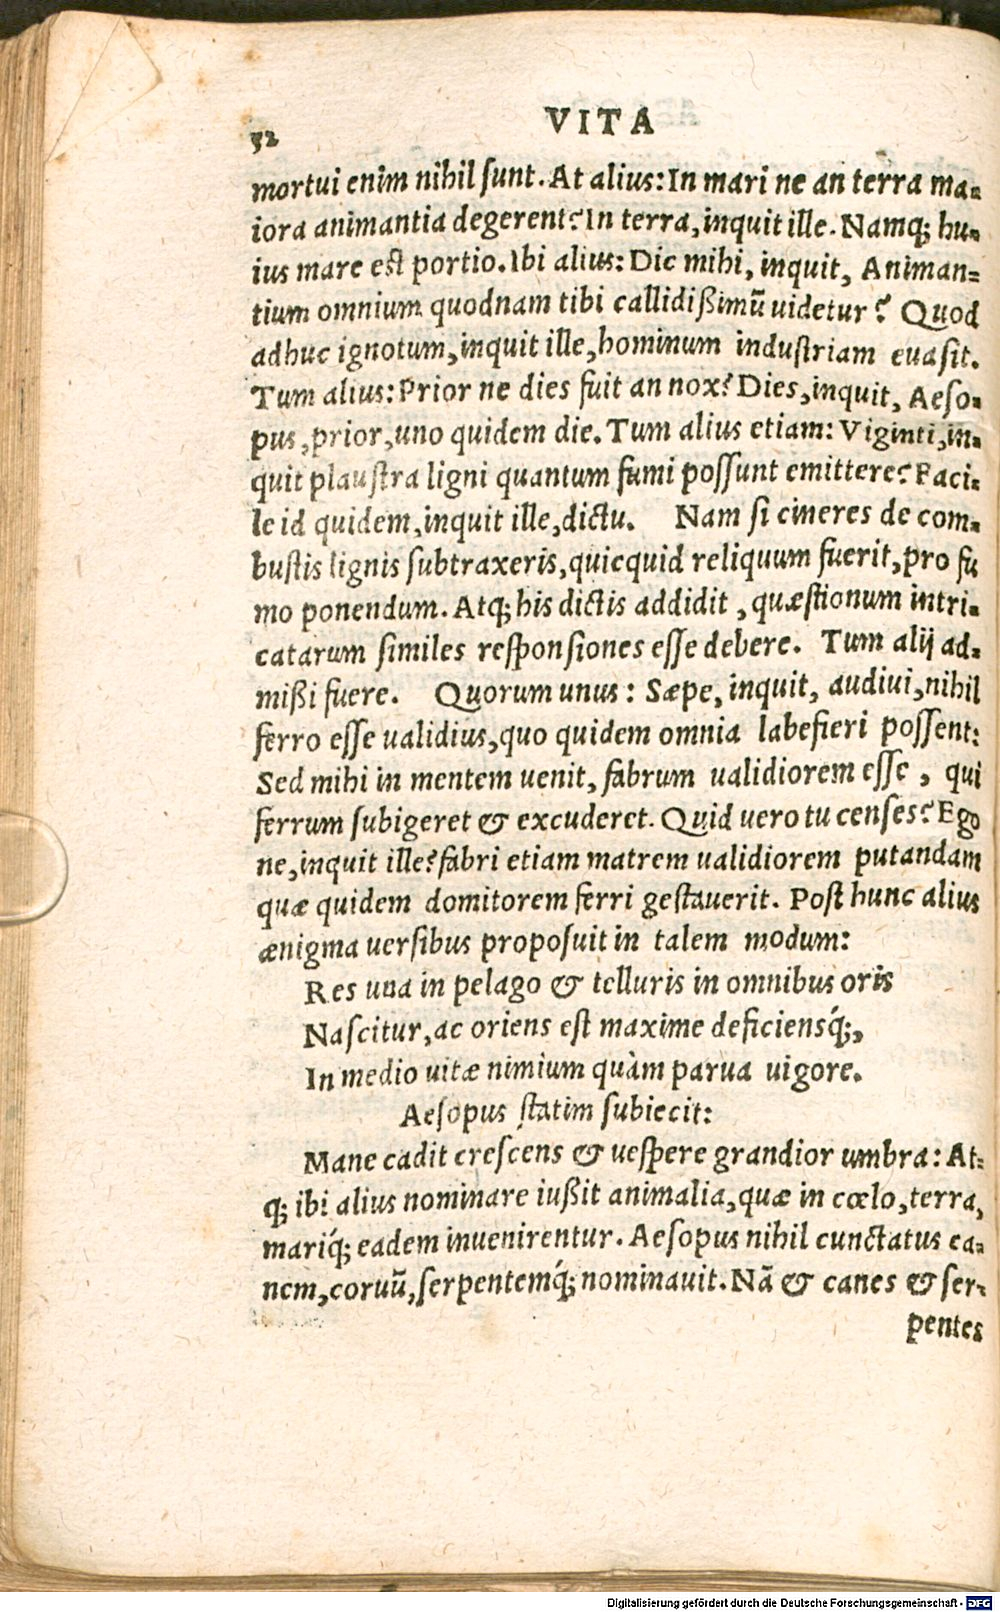 52
VITA
mortui enim nihil sunt. At alius: In mari ne an terra ma-
iora animantia degerent? In terra, inquit ille. Namq; hu-
ius mare est portio. Ibi alius: Dic mihi, inquit, Animan-
tium omnium quodnam tibi callidißimũ uidetur? Quod
adhuc ignotum, inquit ille, hominum industriam euasit.
Tum alius: Prior ne dies fuit an nox? Dies, inquit, Aeso-
pus, prior, uno quidem die. Tum alius etiam: Viginti, in-
quit plaustra ligni quantum fumi possunt emittere? Faci-
le id quidem, inquit ille, dictu. Nam si cineres de com-
bustis lignis subtraxeris, quicquid reliquum fuerit, pro fu
mo ponendum. Atq; his dictis addidit, quæstionum intri-
catarum similes responsiones esse debere. Tum alij ad-
mißi fuere. Quorum unus: Sæpe, inquit, audiui, nihil
ferro esse ualidius, quo quidem omnia labefieri possent:
Sed mihi in mentem uenit, fabrum ualidiorem esse, qui
ferrum subigeret & excuderet. Quid uero tu censes? Ego
ne, inquit ille? fabri etiam matrem ualidiorem putandam
quæ quidem domitorem ferri gestauerit. Post hunc alius
ænigma uersibus proposuit in talem modum:
Res una in pelago & telluris in omnibus oris
Nascitur, ac oriens est maxime deficiensq́;,
In medio uitæ nimium quàm parua uigore.
Aesopus statim subiecit:
Mane cadit crescens & uespere grandior umbra: At-
q; ibi alius nominare iußit animalia, quæ in cœlo, terra,
mariq́; eadem inuenirentur. Aesopus nihil cunctatus ca-
nem, coruũ, serpentemq́; nominauit. Nã & canes & ser-
pentes
Digitalisierung gefördert durch die Deutsche Forschungsgemeinschaft - DFG